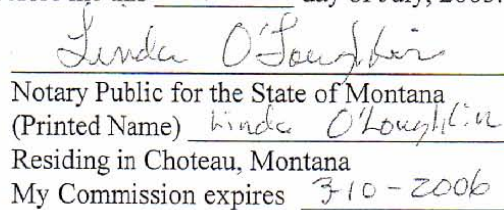 day of July, 2005.
Linda O'Loughlin
Notary Public for the State of Montana
(Printed Name) Linda O'Loughlin
Residing in Choteau, Montana
My Commission expires 3-10-2006